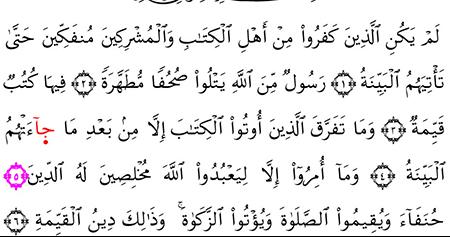 لَمْ يَكُنِ الَّذِينَ كَفَرُوا۟ مِنْ أَهْلِ الْكِتَٰبِ وَالْمُشْرِكِينَ مُنفَكِّينَ حَتَّىٰ
تَأْتِيَهُمُ الْبَيِّنَةُ ﴿١﴾ رَسُولٌ مِّنَ اللَّهِ يَتْلُوا۟ صُحُفًا مُّطَهَّرَةً ﴿٢﴾ فِيهَا كُتُبٌ
قَيِّمَةٌ ﴿٣﴾ وَمَا تَفَرَّقَ الَّذِينَ أُوتُوا۟ الْكِتَٰبَ إِلَّا مِنۢ بَعْدِ مَا جَآءَتْهُمُ
الْبَيِّنَةُ ﴿٤﴾ وَمَآ أُمِرُوٓا۟ إِلَّا لِيَعْبُدُوا۟ اللَّهَ مُخْلِصِينَ لَهُ الدِّينَ ﴿٥﴾
حُنَفَآءَ وَيُقِيمُوا۟ الصَّلَوٰةَ وَيُؤْتُوا۟ الزَّكَوٰةَ ۚ وَذَٰلِكَ دِينُ الْقَيِّمَةِ ﴿٦﴾